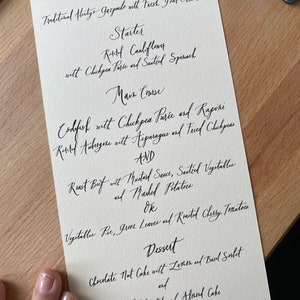 Traditional Alentejo Gaspacho with Fresh
Starter
Roasted Cauliflower
with Chickpea Purée and Sautéed Spinach
Main Course
Codfish with Chickpea Purée and Rapini
Roasted Aubergine with Asparagus and Fried Chickpeas
AND
Roast Beef with Mustard Sauce, Sautéed Vegetables
and Mashed Potatoes
OR
Vegetables Pie, Green Leaves and Roasted Cherry Tomatoes
Dessert
Chocolate Nut Cake with Lemon and Basil Sorbet
and
Almond Cake